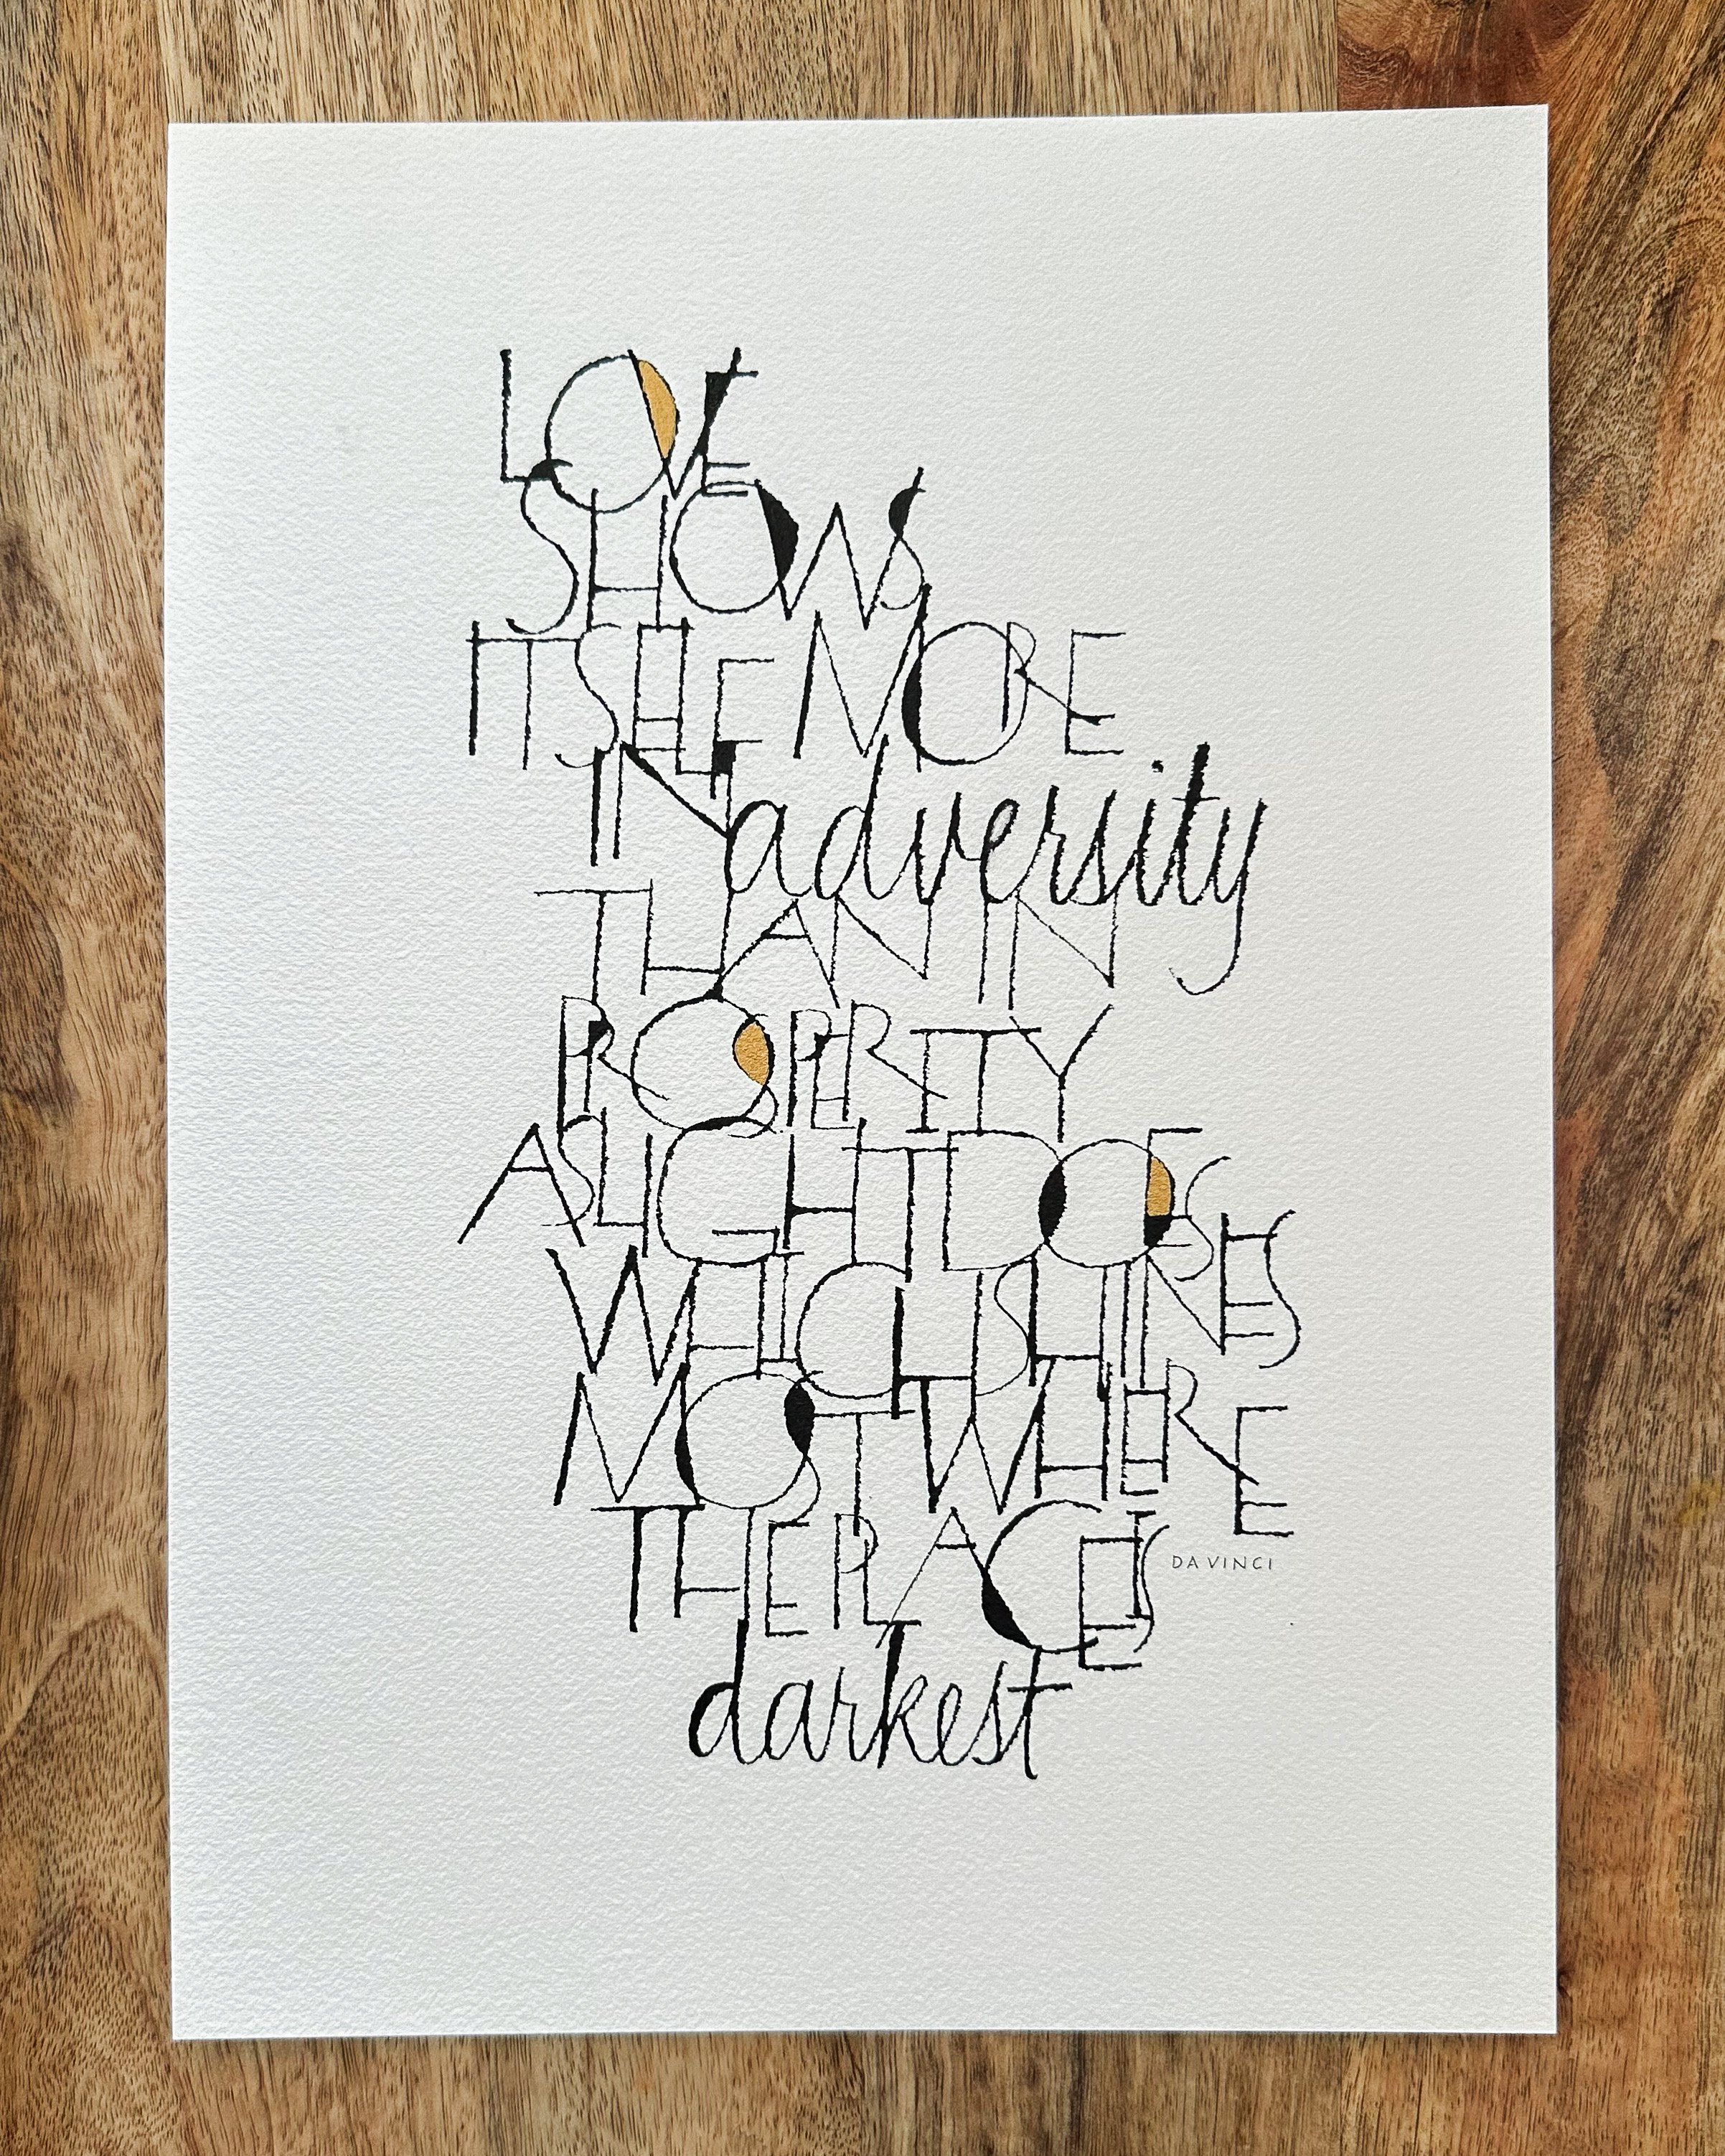 LOVE
SHOWS
ITSELF MORE
IN adversity
THAN IN
PROSPERITY
AS LIGHT DOES
WHICH SHINES
MOST WHERE
THE PLACE IS
DA VINCI
darkest